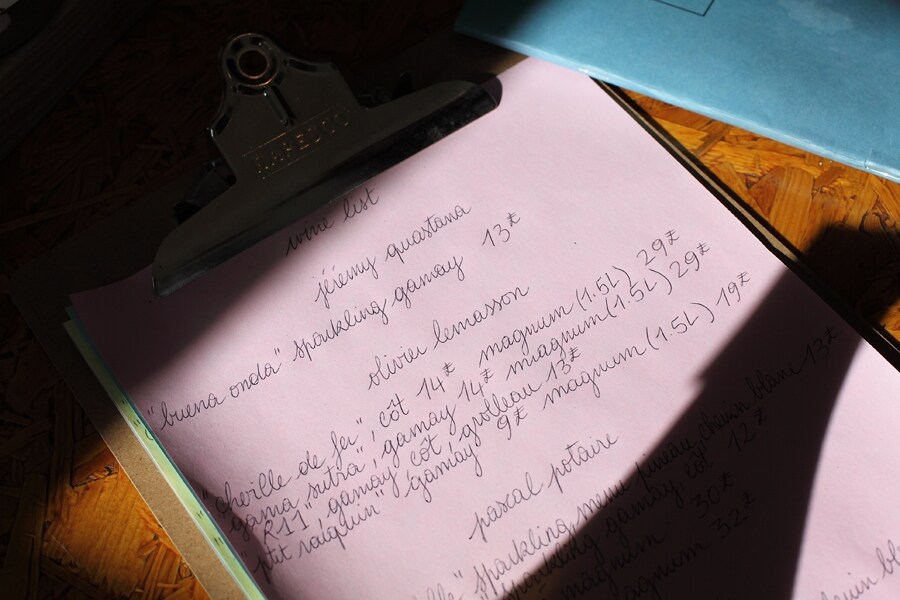 RAPESCO
wine list
jérémy quastana
"buena onda" sparkling gamay 13£
olivier lemasson
"cheville de fer", côt 14£ magnum (1.5L) 29£
"gama sutra", gamay 14£ magnum (1.5L) 29£
"R11" gamay, côt, grolleau 13£
"ptit raiquin" gamay 9£ magnum (1.5L) 19£
pascal potaire
sparkling menu pineau, chenin blanc 13£
sparkling gamay, côt 12£
magnum 30£
magnum 32£